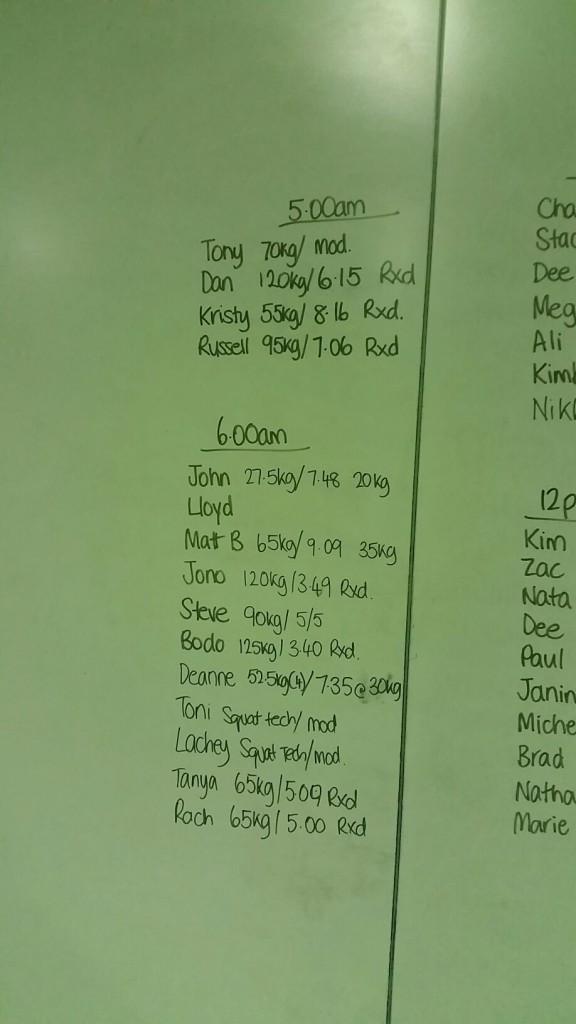 5.00am
Tony 70kg/ mod.
Dan 120kg/6.15 Rxd
Kristy 55kg/ 8.16 Rxd.
Russell 95kg/7.06 Rxd
6.00am
John 27.5kg/7.48 20kg
Lloyd
Matt B 65kg/9.09 35kg
Jono 120kg/3.49 Rxd.
Steve 90kg/ 5/5
Bodo 125kg/ 3.40 Rxd.
Deanne 52.5kg(4)/7.35@30kg
Toni Squat tech/ mod
Lachey Squat Tech/mod.
Tanya 65kg/5.09 Rxd
Rach 65kg/5.00 Rxd
Cha
Stac
Dee
Meg
Ali
Kimb
Nikl
12p
Kim
Zac
Nata
Dee
Paul
Janin
Miche
Brad
Natha
Marie